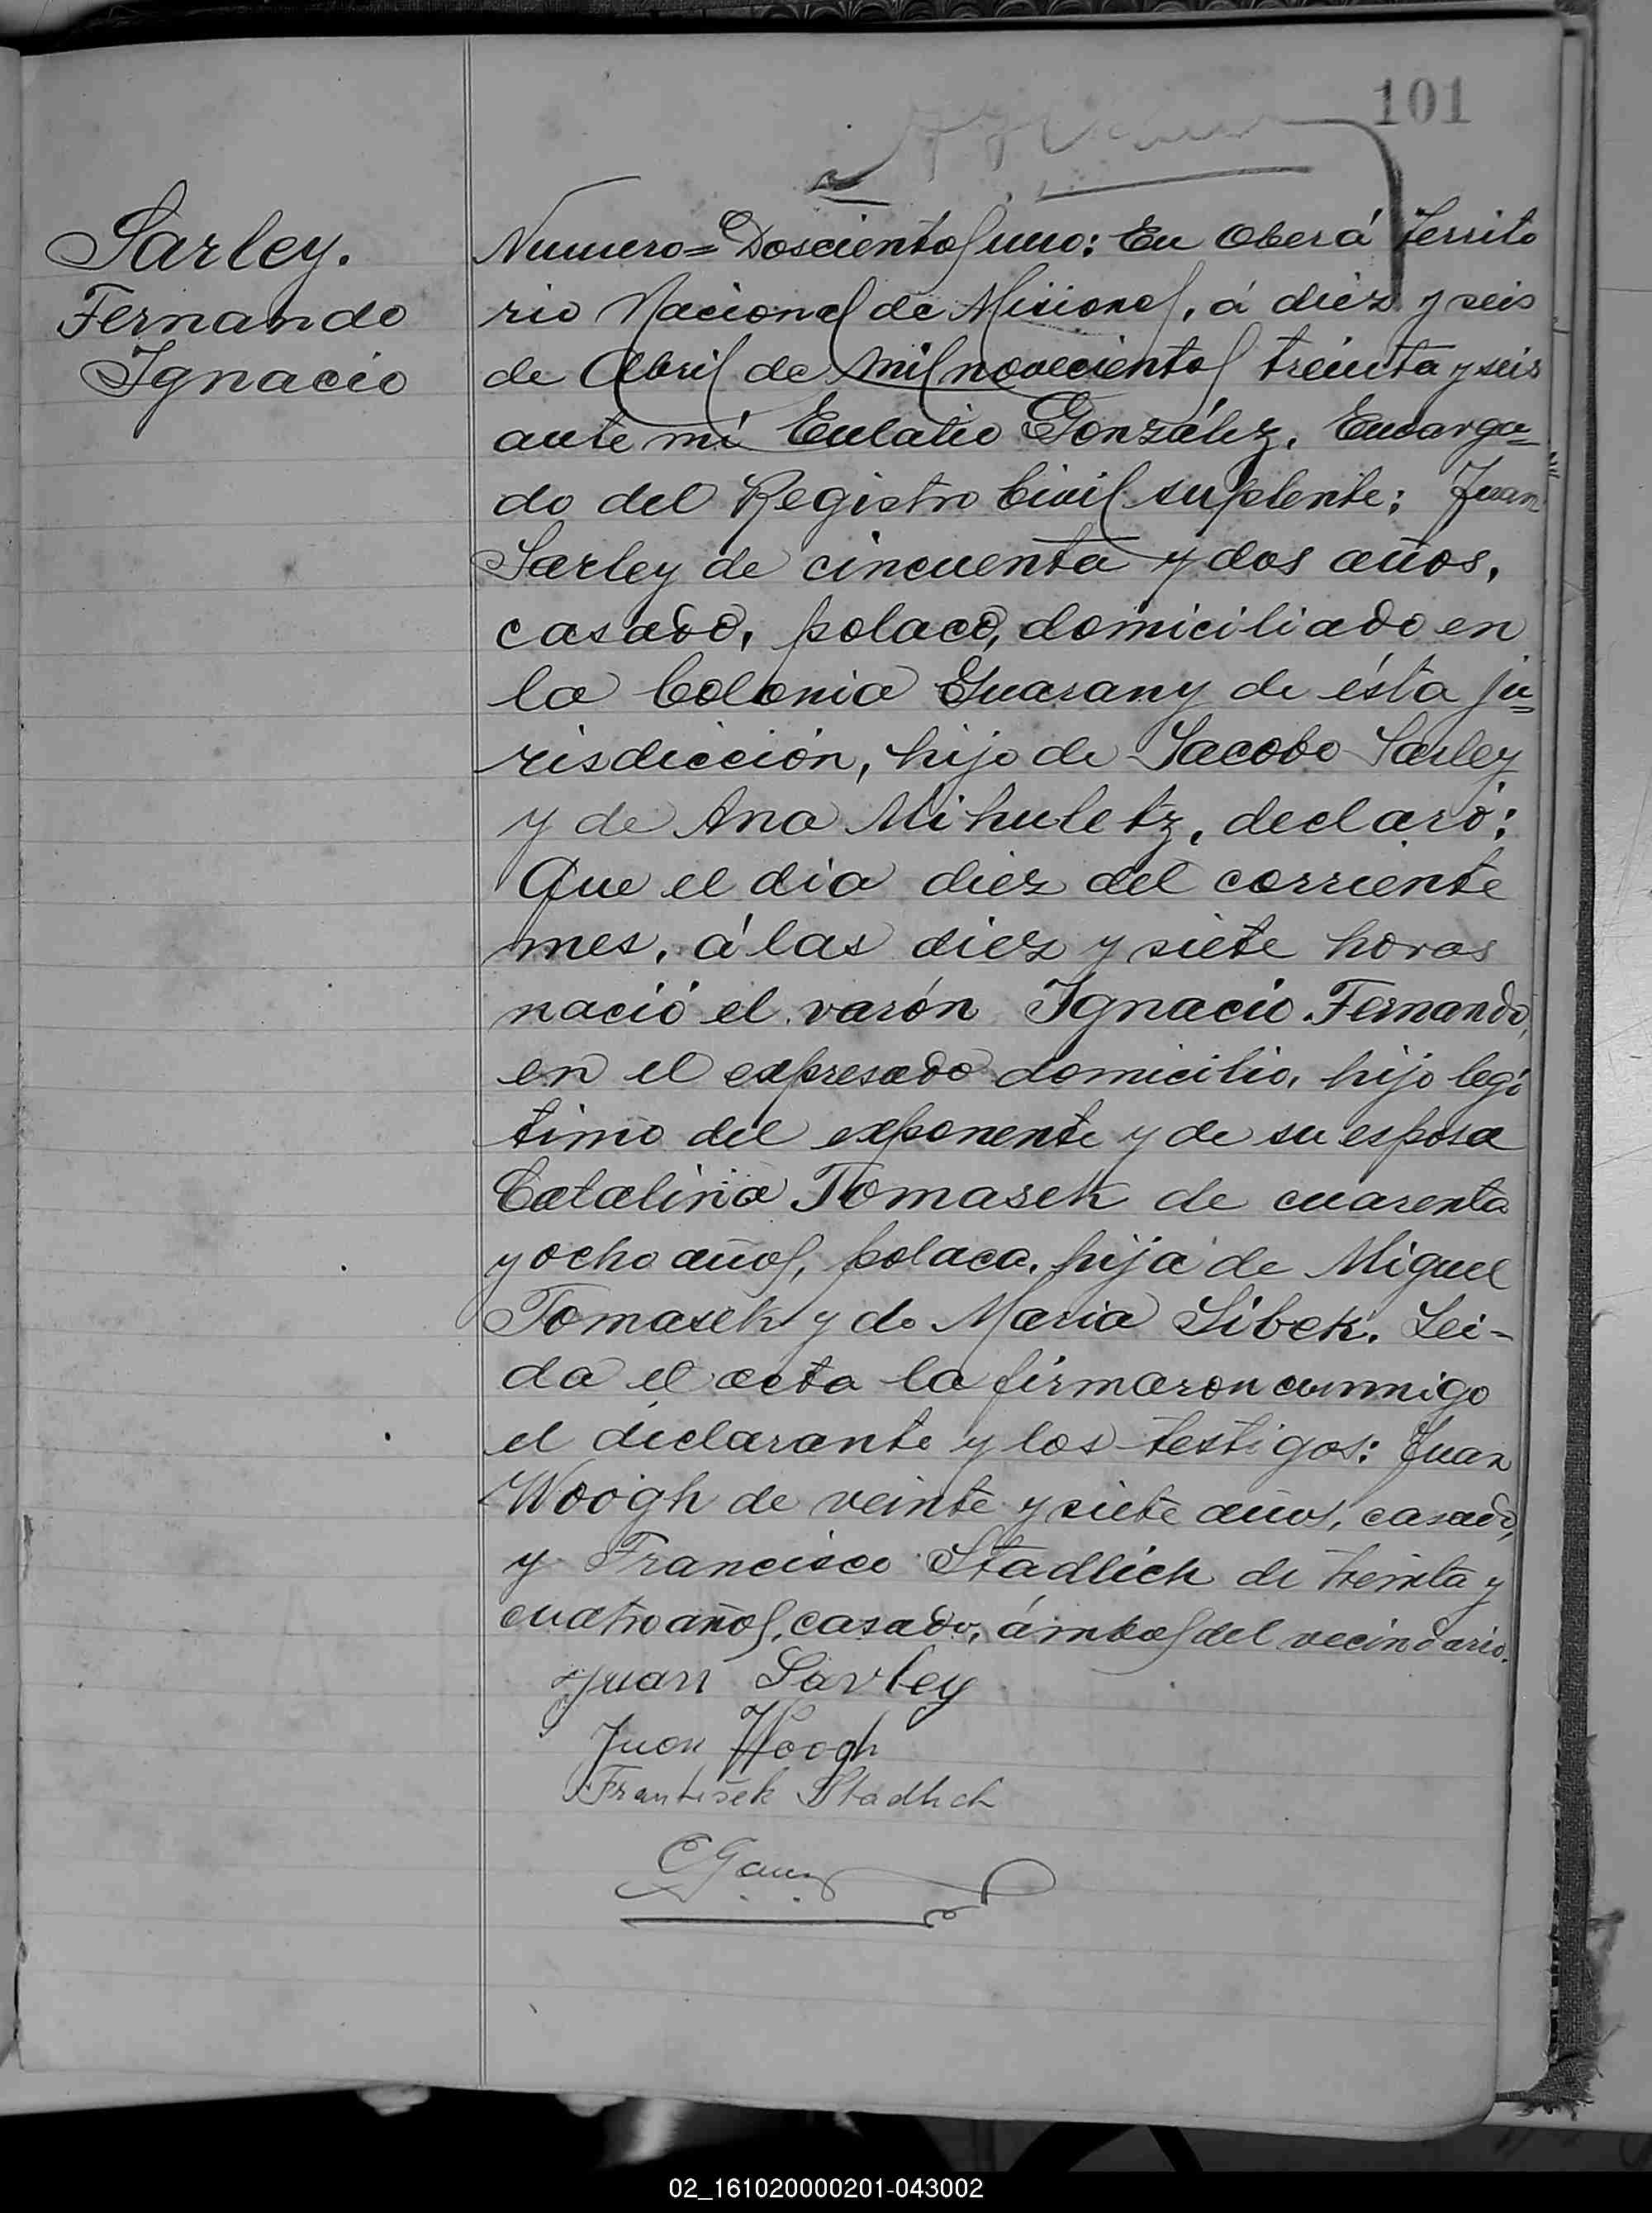 101
Sarley.
Fernando
Ignacio
Numero= Doscientos uno: En Oberá Territo
rio Nacional de Misiones, á diez y seis
de Abril de mil novecientos treinta y seis
ante mí Eulalio González, Encarga=
do del Registro Civil suplente; Juan
Sarley de cincuenta y dos años,
casado, polaco, domiciliado en
la Colonia Guarany de ésta ju=
risdicción, hijo de Jacobo Sarley
y de Ana Mihuletz, declaró:
Que el dia diez del corriente
mes, á las diez y siete horas
nació el varón Ignacio Fernando,
en el expresado domicilio, hijo legí
timo del exponente y de su esposa
Catalina Tomasek de cuarenta
y ocho años, polaca, hija de Miguel
Tomasek y de Maria Sibek. Lei-
da el acta la firmaron conmigo
el declarante y los testigos: Juan
Woogh de veinte y siete años, casado,
y Francisco Stadlich de treinta y
cuatro años, casado, ámbos del vecindario.
Juan Sarley
Juan Woogh
František Stadlich
02_161020000201-043002